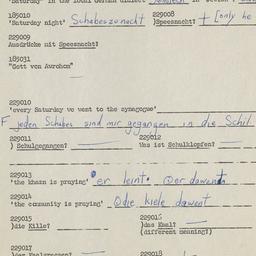 'Saturday' in the local German dialect
185010 229008
'Saturday night' Schabeszonacht )Speesnacht? + [only he
229009
Ausdrücke mit Speesnacht?
185031
"Gott von Awrohom"
229010
'every Saturday we went to the synagogue'
F jeden Schabes sind mir gegangen in die Schil
229011 229012
) Schulgegangen? Was ist Schulklopfen?
229013
'the khazn is praying' er leint. @er dawent
229014
'the community is praying' @die kiele dawent
229015 229016
)die Kille? )das Kaal?
(different meaning?)
229017 229018